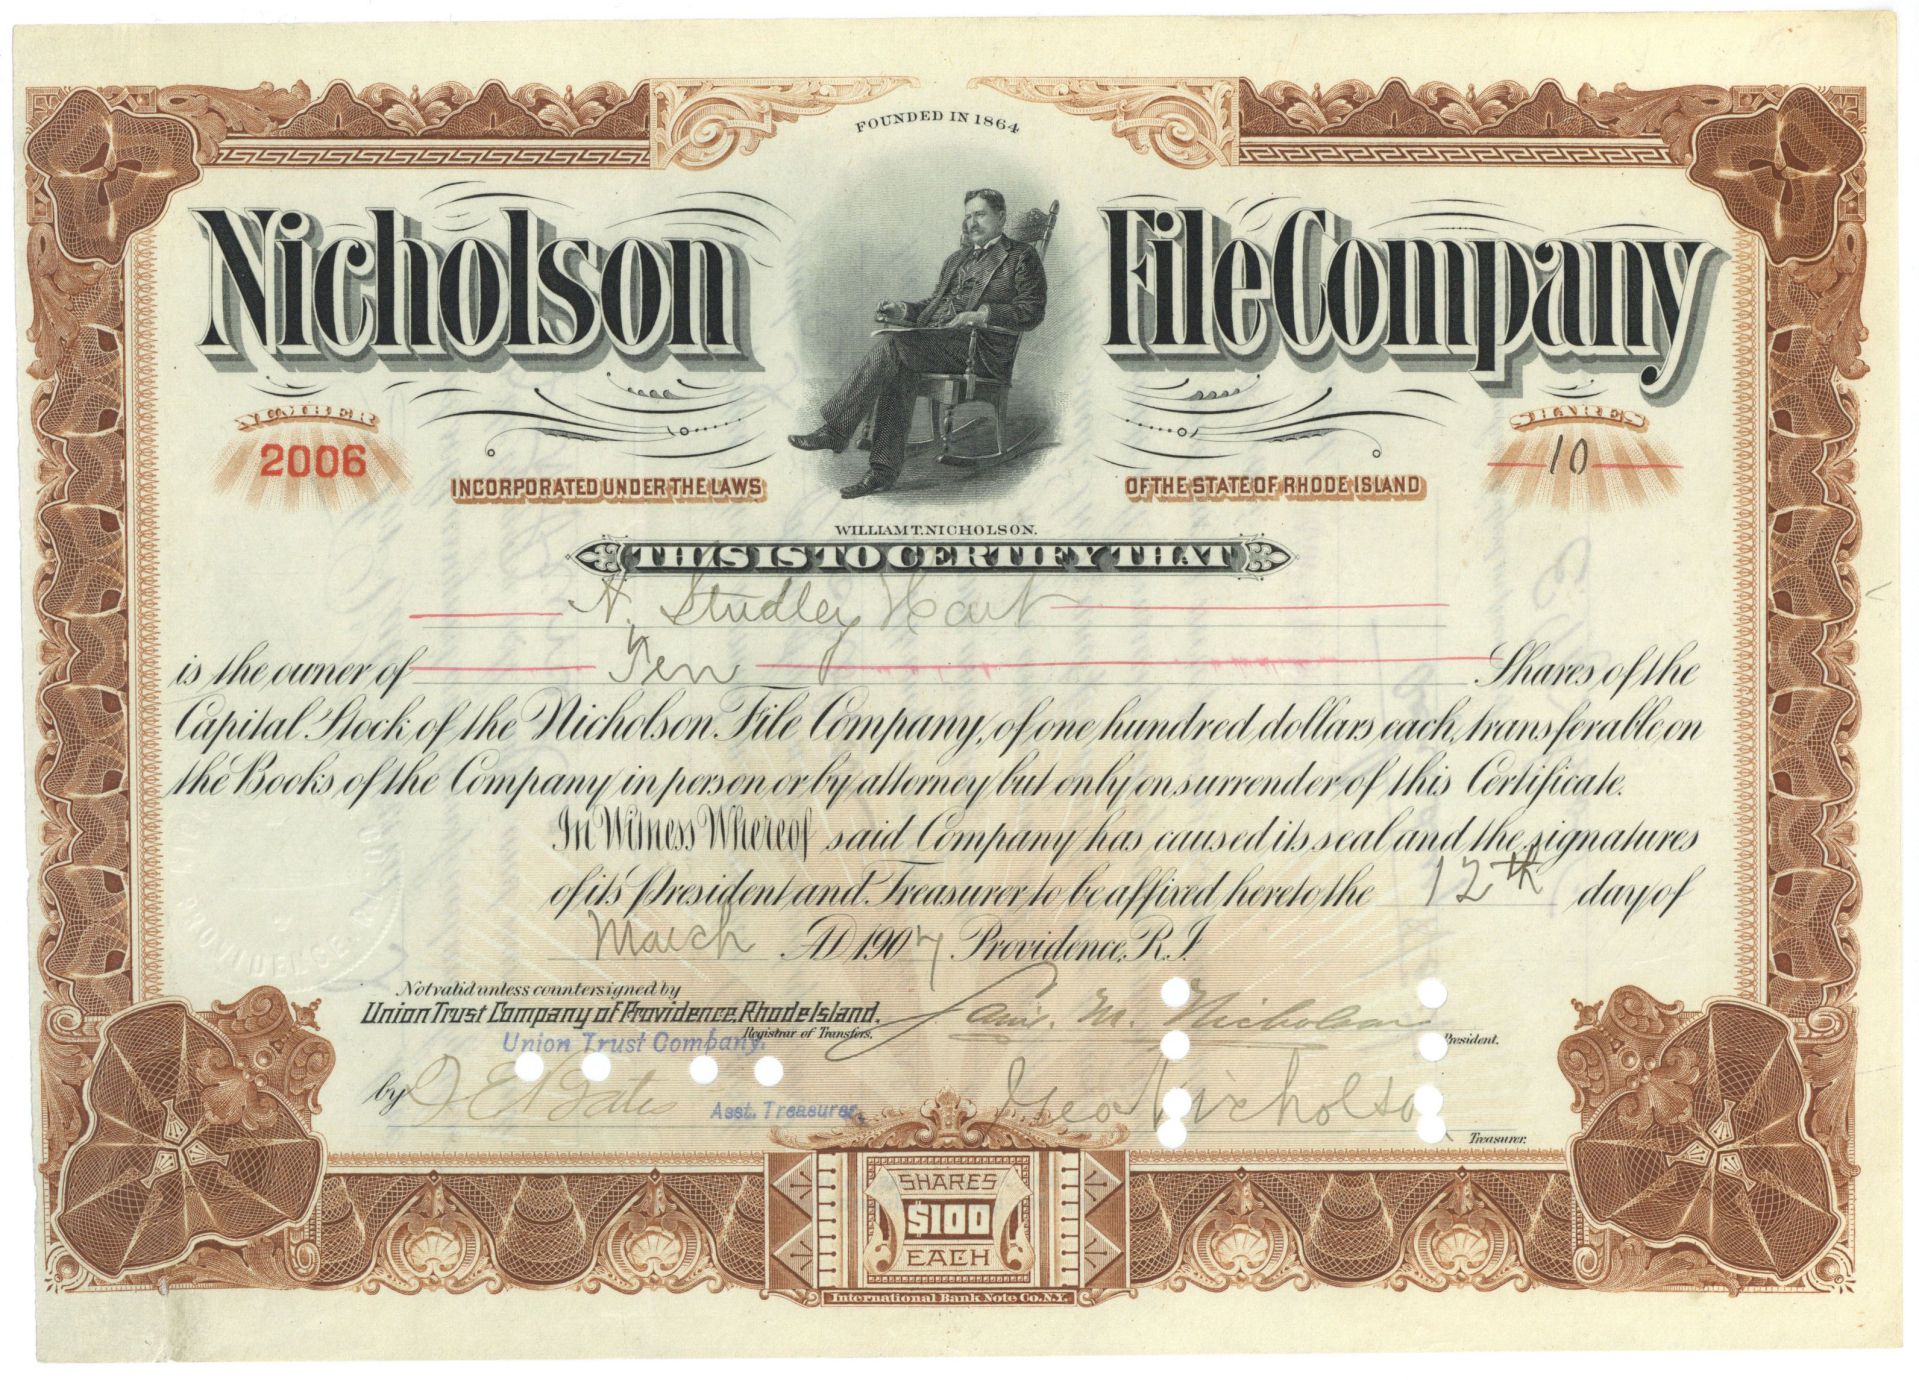 FOUNDED IN 1864
Nicholson File Company
NUMBER
2006
SHARES
10
INCORPORATED UNDER THE LAWS OF THE STATE OF RHODE ISLAND
WILLIAM T. NICHOLSON.
THIS IS TO CERTIFY THAT
N. Studley Hart
is the owner of Ten Shares of the
Capital Stock of the Nicholson File Company, of one hundred dollars each, transferable on
the Books of the Company in person or by attorney but only on surrender of this Certificate.
In Witness Whereof said Company has caused its seal and the signatures
of its President and Treasurer to be affixed hereto the 12th day of
March AD 1907 Providence, R.I.
Not valid unless countersigned by
Union Trust Company of Providence, Rhode Island,
Registrar of Transfers.
Union Trust Company.
Saml. M. Nicholson
President.
by
Asst. Treasurer.
Geo Nicholson
Treasurer.
PROVIDENCE, R.I.
SHARES
$100
EACH
International Bank Note Co. N.Y.